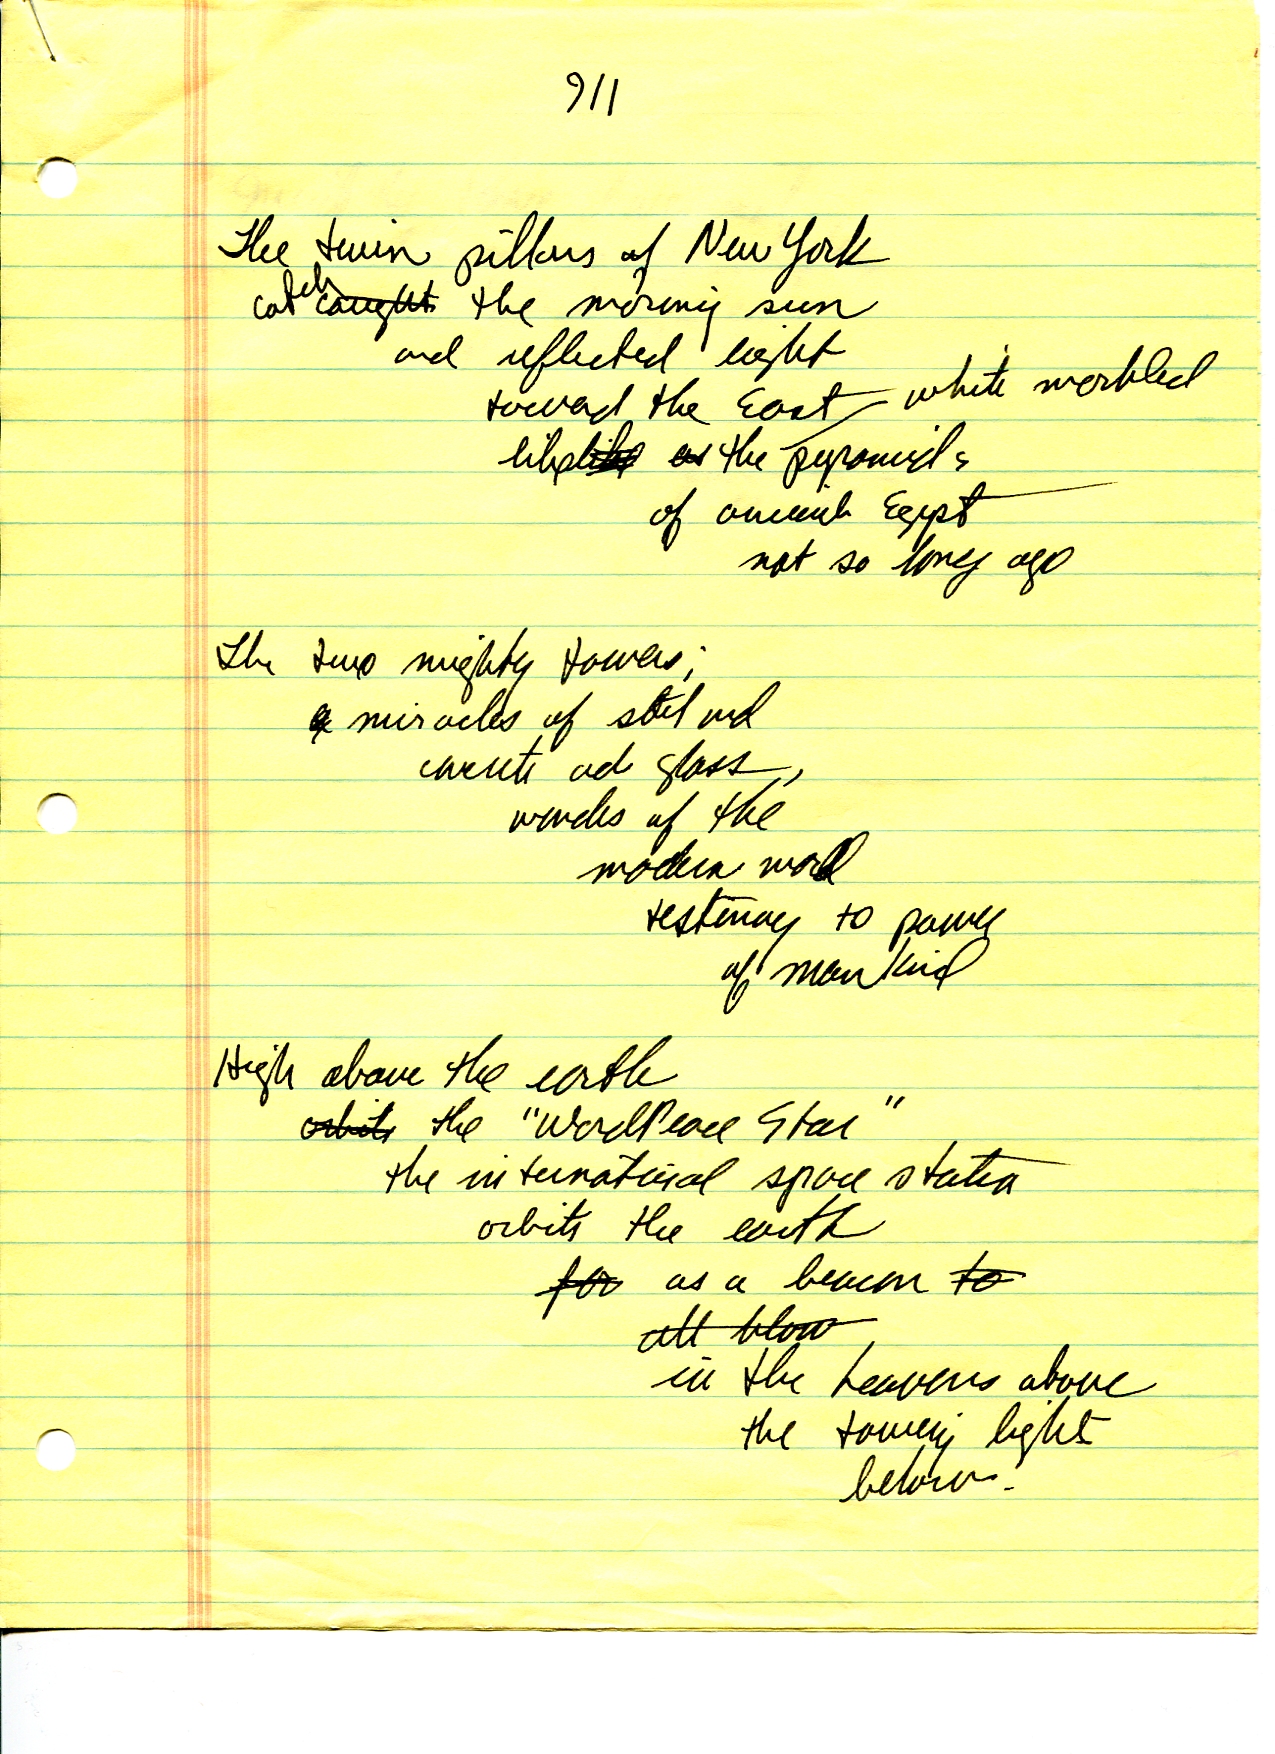 911
The twin pillars of New York
catch caught the morning sun
and reflected light
toward the East white marbled
like like as the pyramids
of ancient Egypt
not so long ago
The two mighty towers;
miracles of steel and
concrete and glass,
wonders of the
modern world
testimony to power
of mankind
High above the earth
orbits the "WorldPeace Star"
the international space station
orbits the earth
for as a beacon to
all blow
in the heavens above
the towering lights
below.